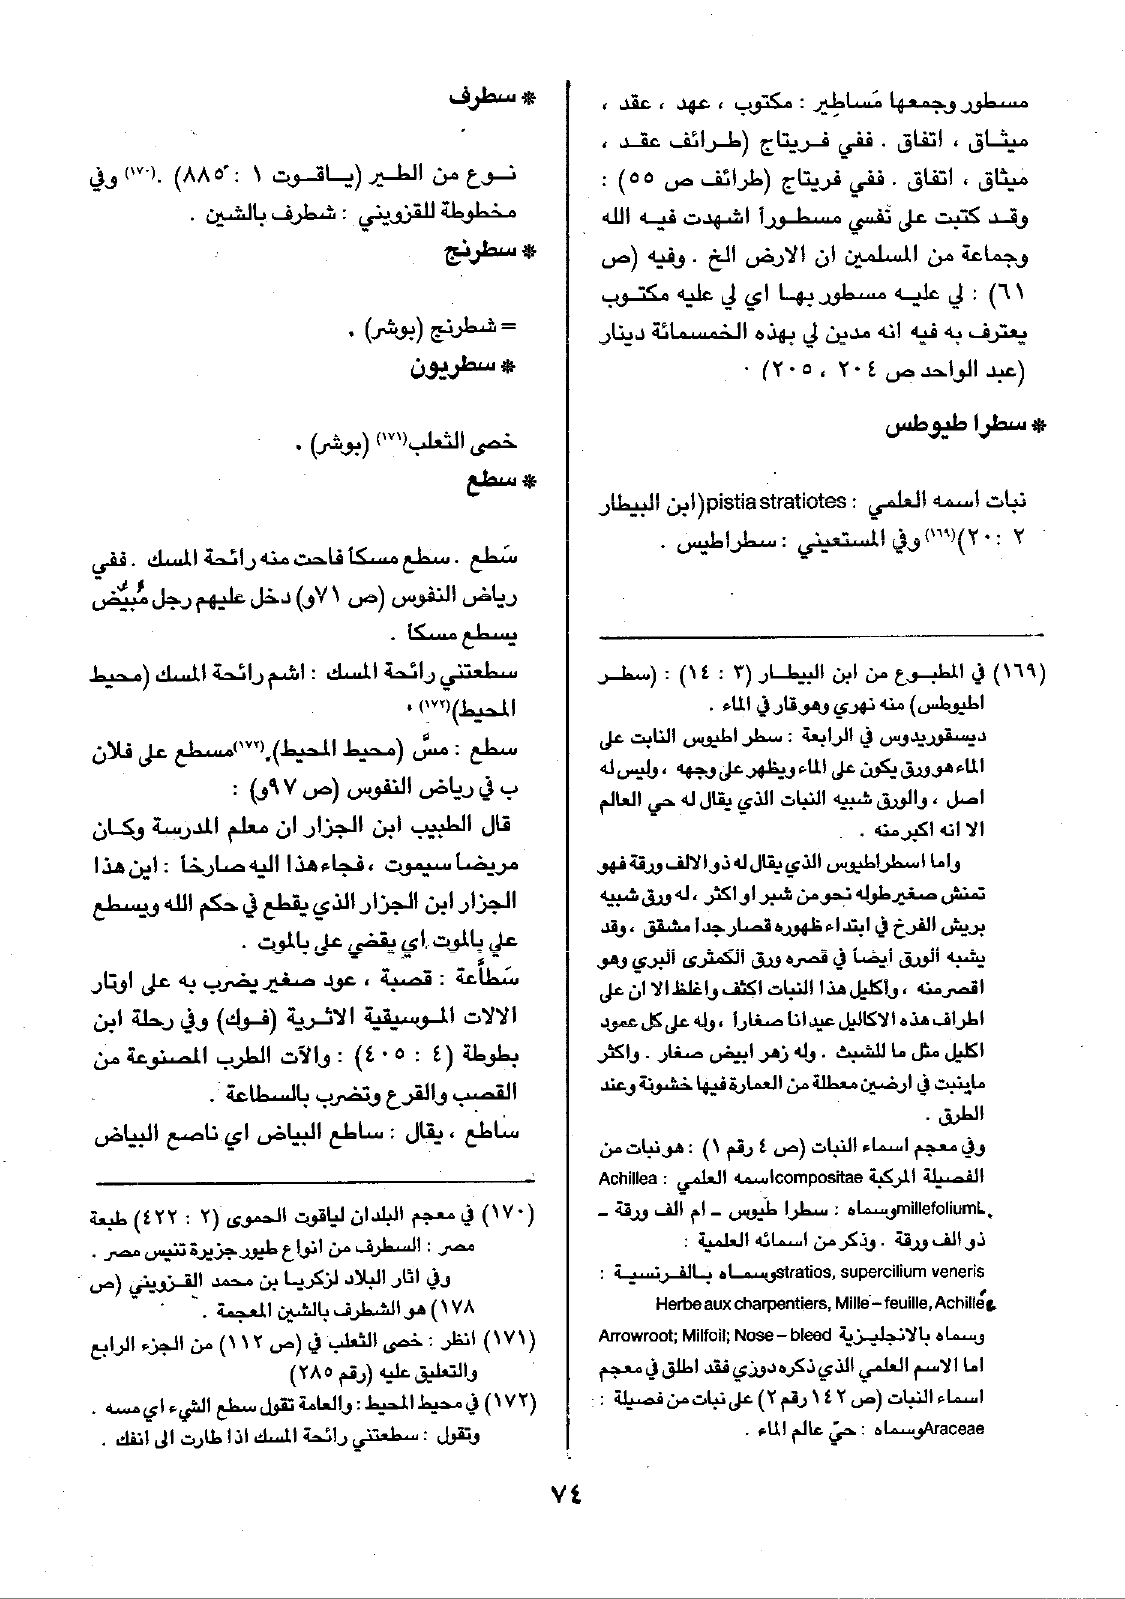 مسطور وجمعها مَساطِير : مكتوب ، عهد ، عقد ،
ميثاق ، اتفاق . ففي فريتاج (طرائف عقد ،
ميثاق ، اتفاق . ففي فريتاج (طرائف ص ٥٥) :
وقد كتبت على نفسي مسطوراً اشهدت فيه الله
وجماعة من المسلمين ان الارض الخ . وفيه (ص
٦١) : لي عليه مسطور بها اي لي عليه مكتوب
يعترف به فيه انه مدين لي بهذه الخمسمائة دينار
(عبد الواحد ص ٢٠٤ ، ٢٠٥) .
* سطرا طيوطس
نبات اسمه العلمي : pistia stratiotes (ابن البيطار
٢ : ٢٠)(١٦٩) وفي المستعيني : سطراطيس .
(١٦٩) في المطبوع من ابن البيطار (٣ : ١٤) : (سطر
اطيوطس) منه نهري وهو قار في الماء .
ديسقوريدوس في الرابعة : سطر اطيوس النابت على
الماء هو ورق يكون على الماء ويظهر على وجهه ، وليس له
اصل ، والورق شبيه النبات الذي يقال له حي العالم
الا انه اكبر منه .
واما اسطراطيوس الذي يقال له ذو الالف ورقة فهو
تمنش صغير طوله نحو من شبر او اكثر ، له ورق شبيه
بريش الفرخ في ابتداء ظهوره قصار جداً مشقق ، وقد
يشبه الورق أيضاً في قصره ورق الكمثرى البري وهو
اقصر منه ، واكليل هذا النبات اكثف واغلظ الا ان على
اطراف هذه الاكاليل عيدانا صغاراً ، وله على كل عمود
اكليل مثل ما للشبث . وله زهر ابيض صغار . واكثر
ماينبت في ارضين معطلة من العمارة فيها خشونة وعند
الطرق .
وفي معجم اسماء النبات (ص ٤ رقم ١) : هو نبات من
الفصيلة المركبة compositae اسمه العلمي : Achillea
millefolium L. وسماه : سطرا طيوس ـ ام الف ورقة ـ
ذو الف ورقة . وذكر من اسمائه العلمية :
stratios, supercilium veneris وسماه بالفرنسية :
Herbe aux charpentiers, Mille-feuille, Achillée
وسماه بالانجليزية Arrowroot; Milfoil; Nose-bleed
اما الاسم العلمي الذي ذكره دوزي فقد اطلق في معجم
اسماء النبات (ص ١٤٢ رقم ٢) على نبات من فصيلة :
Araceae وسماه : حيّ عالم الماء .
* سطرف
نوع من الطير (ياقوت ١ : ٨٨٥) .(١٧٠) وفي
مخطوطة للقزويني : شطرف بالشين .
* سطرنج
= شطرنج (بوشر) .
* سطريون
خصى الثعلب(١٧١) (بوشر) .
* سطع
سَطع . سطع مسكاً فاحت منه رائحة المسك . ففي
رياض النفوس (ص ٧١و) دخل عليهم رجل مُبيّض
يسطع مسكاً .
سطعتني رائحة المسك : اشم رائحة المسك (محيط
المحيط)(١٧٢) .
سطع : مسَّ (محيط المحيط).(١٧٢) مسطع على فلان
ب في رياض النفوس (ص ٩٧و) :
قال الطبيب ابن الجزار ان معلم المدرسة وكان
مريضاً سيموت ، فجاء هذا اليه صارخاً : اين هذا
الجزار ابن الجزار الذي يقطع في حكم الله ويسطع
علي بالموت اي يقضي علي بالموت .
سَطَّاعة : قصبة ، عود صغير يضرب به على اوتار
الالات الموسيقية الاثرية (فوك) وفي رحلة ابن
بطوطة (٤ : ٤٠٥) : والآت الطرب المصنوعة من
القصب والقرع وتضرب بالسطاعة .
ساطع ، يقال : ساطع البياض اي ناصع البياض
(١٧٠) في معجم البلدان لياقوت الحموى (٢ : ٤٢٢) طبعة
مصر : السطرف من انواع طيور جزيرة تنيس مصر .
وفي اثار البلاد لزكريا بن محمد القزويني (ص
١٧٨) هو الشطرف بالشين المعجمة .
(١٧١) انظر : خصى الثعلب في (ص ١١٢) من الجزء الرابع
والتعليق عليه (رقم ٢٨٥)
(١٧٢) في محيط المحيط : والعامة تقول سطع الشيء اي مسه .
وتقول : سطعتني رائحة المسك اذا طارت الى انفك .
٧٤